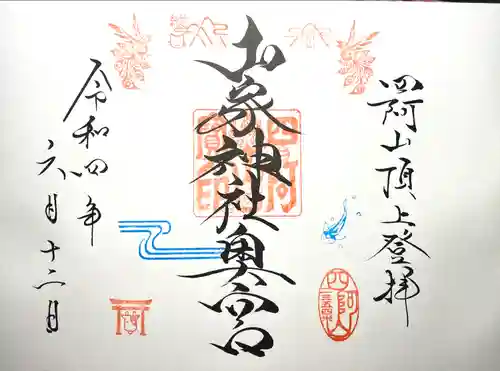 四阿山頂上登拝
山家神社奥宮
令和四年
六月十二日
四阿山